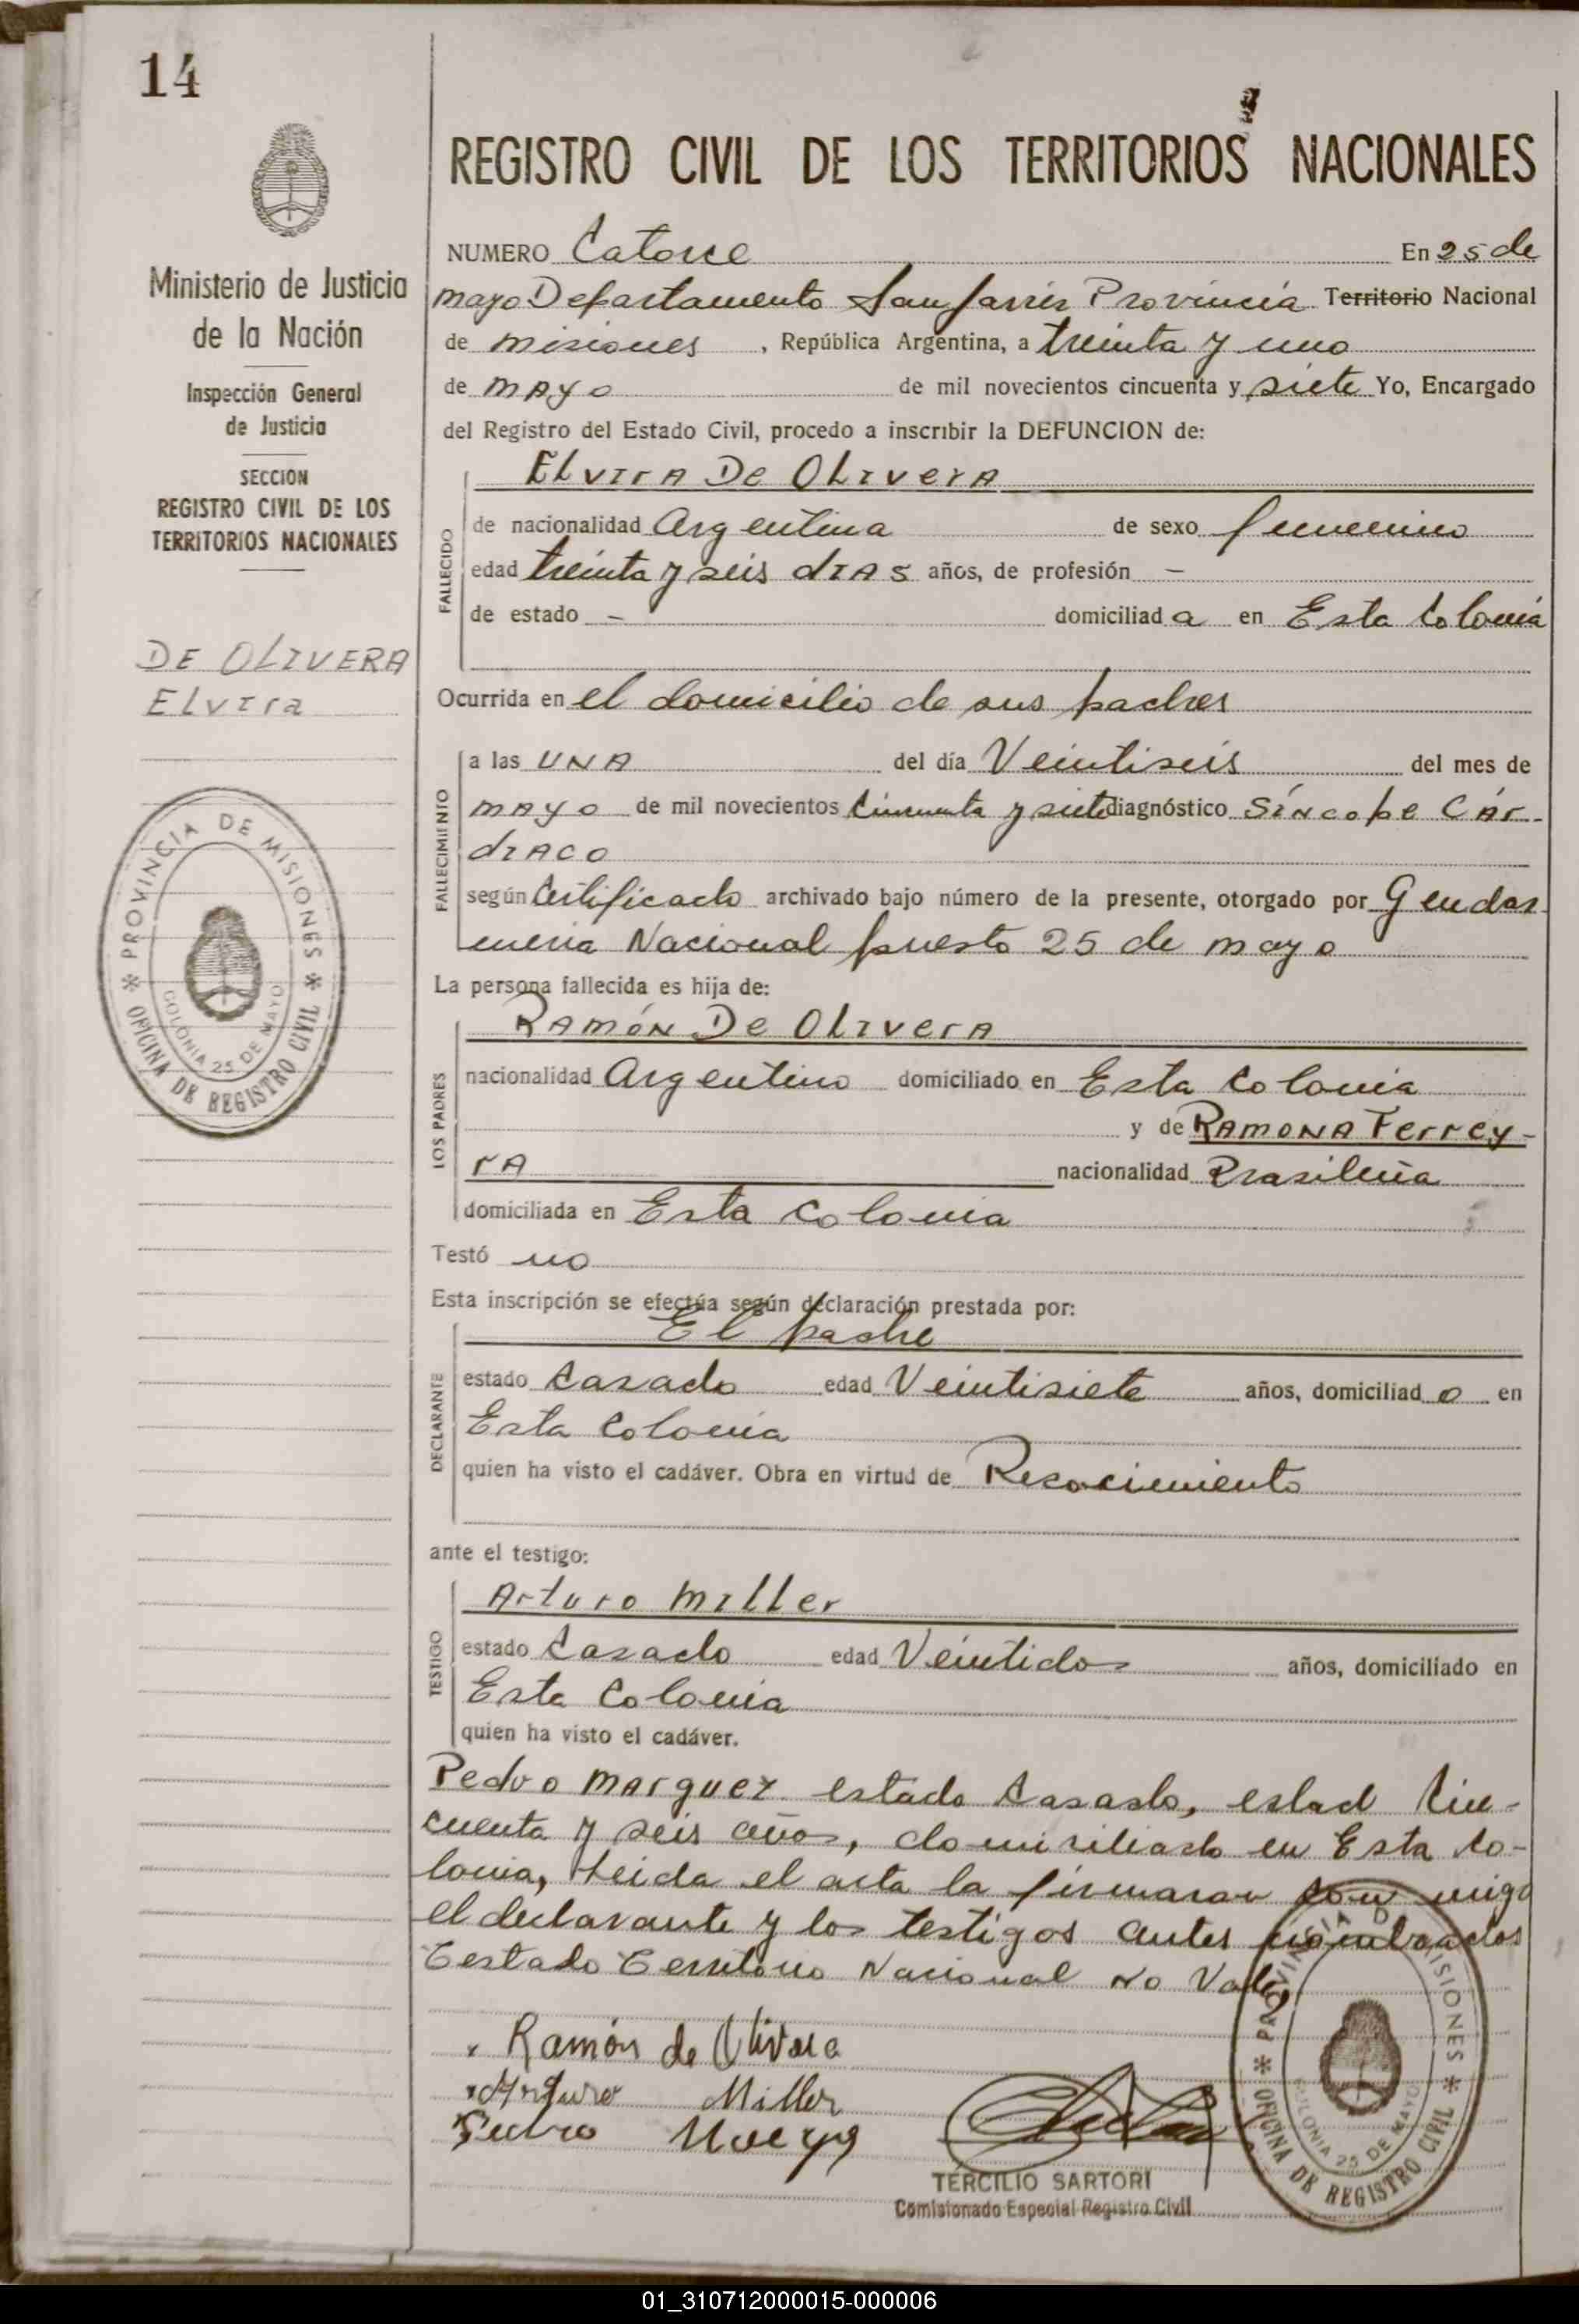 14
REGISTRO CIVIL DE LOS TERRITORIOS NACIONALES
Ministerio de Justicia
de la Nación
Inspección General
de Justicia
SECCION
REGISTRO CIVIL DE LOS
TERRITORIOS NACIONALES
DE OLIVERA
Elvira
PROVINCIA DE MISIONES
OFICINA DE REGISTRO CIVIL
COLONIA 25 DE MAYO
NUMERO Catorce En 25 de
mayo Departamento San Javier Provincia Territorio Nacional
de misiones , República Argentina, a treinta y uno
de mayo de mil novecientos cincuenta y siete Yo, Encargado
del Registro del Estado Civil, procedo a inscribir la DEFUNCION de:
Elvira De Olivera
FALLECIDO
de nacionalidad Argentina de sexo femenino
edad treinta y seis dias años, de profesión —
de estado — domiciliad a en Esta Colonia
Ocurrida en el domicilio de sus padres
FALLECIMIENTO
a las UNA del día Veintiseis del mes de
mayo de mil novecientos cincuenta y siete diagnóstico Síncope Cár-
diaco
según Certificado archivado bajo número de la presente, otorgado por Gendar
meria Nacional puesto 25 de mayo
La persona fallecida es hija de:
LOS PADRES
Ramón De Olivera
nacionalidad Argentino domiciliado en Esta Colonia
y de Ramona Ferrey-
ra nacionalidad Brasileña
domiciliada en Esta Colonia
Testó no
Esta inscripción se efectúa según declaración prestada por:
DECLARANTE
El padre
estado Casado edad Veintisiete años, domiciliad o en
Esta Colonia
quien ha visto el cadáver. Obra en virtud de Reconocimiento
ante el testigo:
TESTIGO
Arturo Miller
estado Casado edad Veintidos años, domiciliado en
Esta Colonia
quien ha visto el cadáver.
Pedro Marquez estado Casado, edad Cin-
cuenta y seis años, domiciliado en Esta Co-
lonia, Leida el acta la firmaran con migo
el declarante y los testigos antes nombrados
Testado Territorio Nacional No Vale
Ramón de Olivera
Arturo Miller
Pedro
TERCILIO SARTORI
Comisionado Especial Registro Civil
PROVINCIA DE MISIONES
OFICINA DE REGISTRO CIVIL
COLONIA 25 DE MAYO
01_310712000015-000006